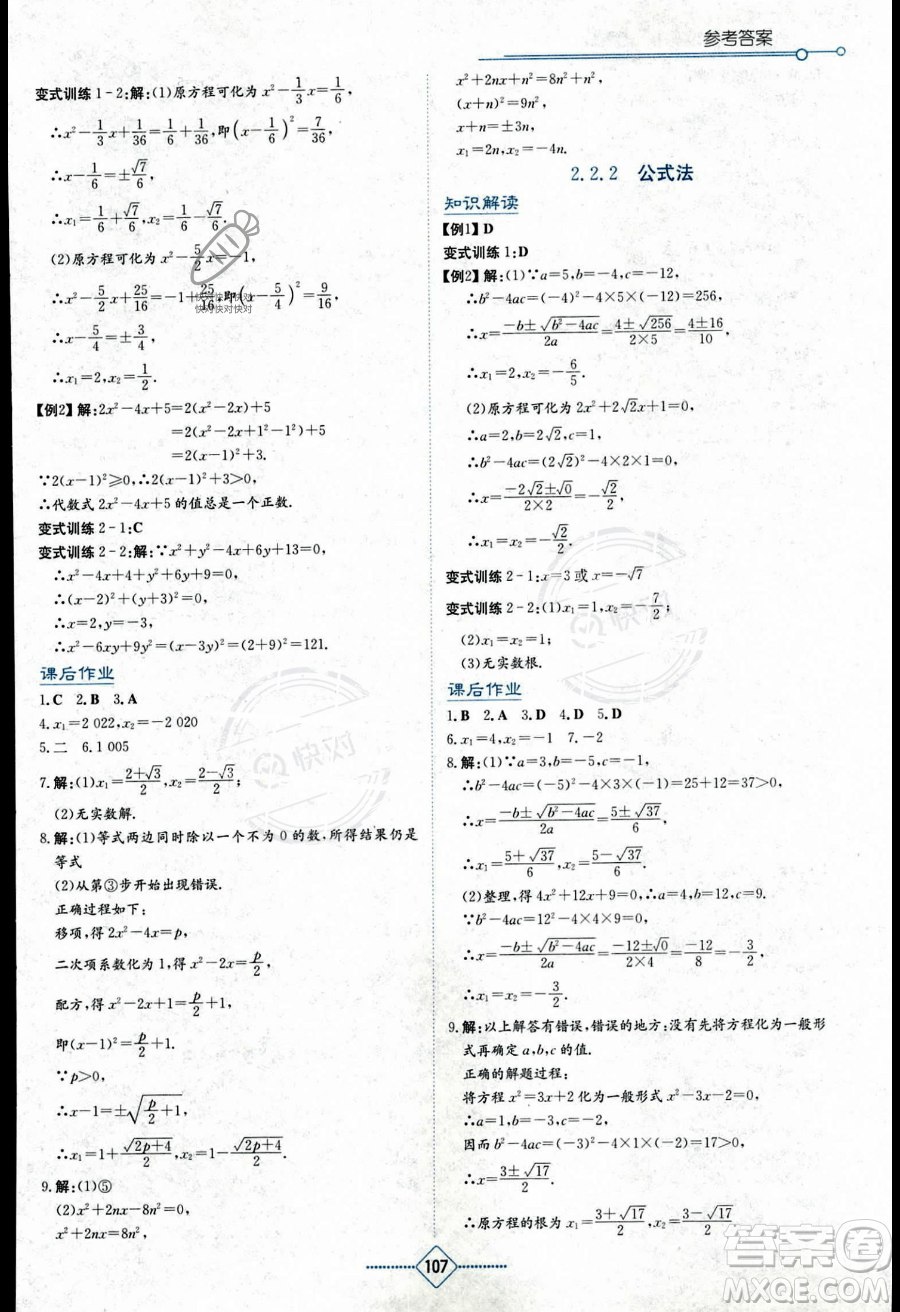 参考答案
变式训练1-2:解:(1)原方程可化为x²-1/3x=1/6,
∴x²-1/3x+1/36=1/6+1/36,即(x-1/6)²=7/36,
∴x-1/6=±√7/6,
∴x₁=1/6+√7/6,x₂=1/6-√7/6.
(2)原方程可化为x²-5/2x=-1,
∴x²-5/2x+25/16=-1+25/16,即(x-5/4)²=9/16,
∴x-5/4=±3/4,
∴x₁=2,x₂=1/2.
【例2】解:2x²-4x+5=2(x²-2x)+5
=2(x²-2x+1²-1²)+5
=2(x-1)²+3.
∵2(x-1)²≥0,∴2(x-1)²+3>0,
∴代数式2x²-4x+5的值总是一个正数.
变式训练2-1:C
变式训练2-2:解:∵x²+y²-4x+6y+13=0,
∴x²-4x+4+y²+6y+9=0,
∴(x-2)²+(y+3)²=0,
∴x=2,y=-3,
∴x²-6xy+9y²=(x-3y)²=(2+9)²=121.
课后作业
1.C 2.B 3.A
4.x₁=2 022,x₂=-2 020
5.二 6.1 005
7.解:(1)x₁=(2+√3)/2,x₂=(2-√3)/2;
(2)无实数解.
8.解:(1)等式两边同时除以一个不为0的数,所得结果仍是
等式
(2)从第③步开始出现错误.
正确过程如下:
移项,得2x²-4x=p,
二次项系数化为1,得x²-2x=p/2,
配方,得x²-2x+1=p/2+1,
即(x-1)²=p/2+1.
∵p>0,
∴x-1=±√(p/2+1),
∴x₁=1+√(2p+4)/2,x₂=1-√(2p+4)/2.
9.解:(1)⑤
(2)x²+2nx-8n²=0,
x²+2nx=8n²,
x²+2nx+n²=8n²+n²,
(x+n)²=9n²,
x+n=±3n,
x₁=2n,x₂=-4n.
2.2.2 公式法
知识解读
【例1】D
变式训练1:D
【例2】解:(1)∵a=5,b=-4,c=-12,
∴b²-4ac=(-4)²-4×5×(-12)=256,
∴x=(-b±√(b²-4ac))/2a=(4±√256)/(2×5)=(4±16)/10,
∴x₁=2,x₂=-6/5.
(2)原方程可化为x²+2√2x+2=0,
∴a=1,b=2√2,c=2,
∴b²-4ac=(2√2)²-4×2×1=0,
∴x=(-2√2±√0)/(2×2)=-√2/2,
∴x₁=x₂=-√2/2.
变式训练2-1:x=3或x=-√7
变式训练2-2:(1)x₁=1,x₂=-7/2;
(2)x₁=x₂=1;
(3)无实数根.
课后作业
1.B 2.A 3.D 4.D 5.D
6.x₁=4,x₂=-1 7.-2
8.解:(1)∵a=3,b=-5,c=-1,
∴b²-4ac=(-5)²-4×3×(-1)=25+12=37>0,
∴x=(-b±√(b²-4ac))/2a=(5±√37)/6,
∴x₁=(5+√37)/6,x₂=(5-√37)/6.
(2)整理,得4x²+12x+9=0,∴a=4,b=12,c=9.
∵b²-4ac=12²-4×4×9=0,
∴x=(-b±√(b²-4ac))/2a=(-12±√0)/(2×4)=-12/8=-3/2,
∴x₁=x₂=-3/2.
9.解:以上解答有错误,错误的地方:没有先将方程化为一般形
式再确定a,b,c的值.
正确的解题过程:
将方程x²=3x+2化为一般形式为x²-3x-2=0,
∴a=1,b=-3,c=-2,
因而b²-4ac=(-3)²-4×1×(-2)=17>0,
∴x=(3±√17)/2,
∴原方程的根为x₁=(3+√17)/2,x₂=(3-√17)/2.
107
快对快对快对
快对快对快对
快对
快对
答案圈
MXQE.COM